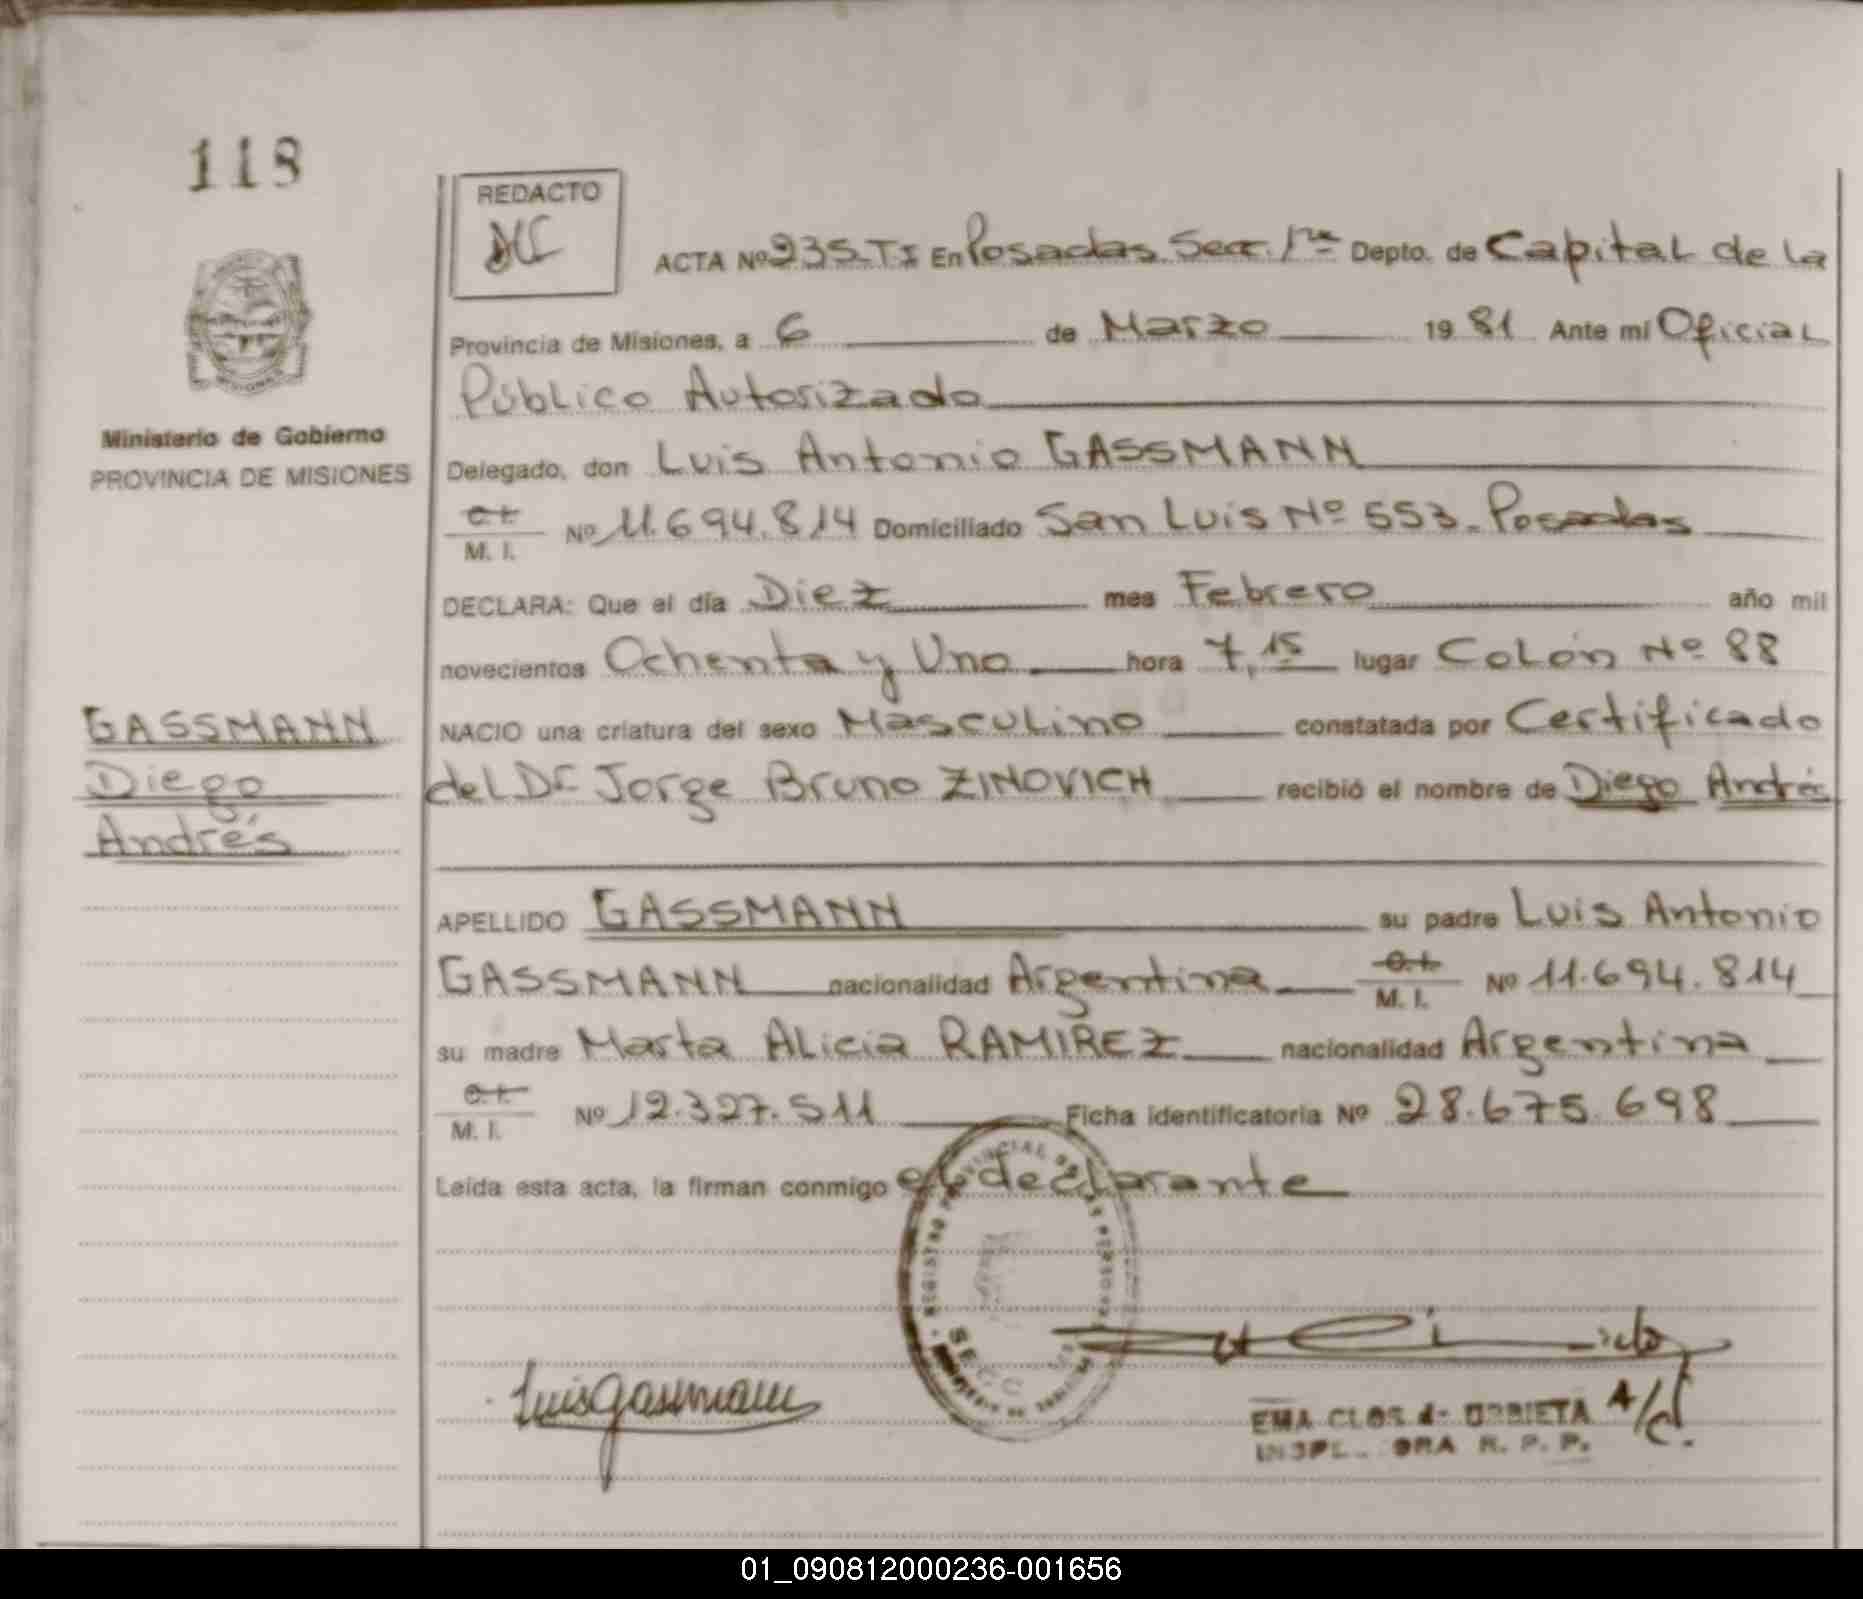 118
REDACTO
ACTA Nº 235-TI En Posadas Secc. 1ra Depto. de Capital de la
Provincia de Misiones, a 6 de Marzo 1981 Ante mí Oficial
Público Autorizado
Ministerio de Gobierno
PROVINCIA DE MISIONES
Delegado, don Luis Antonio GASSMANN
C.I.
M. I. Nº 11.694.814 Domiciliado San Luis Nº 553-Posadas
DECLARA: Que el día Diez mes Febrero año mil
novecientos Ochenta y Uno hora 7,15 lugar Colón Nº 88
GASSMANN
Diego
Andrés
NACIO una criatura del sexo Masculino constatada por Certificado
del Dr Jorge Bruno ZINOVICH recibió el nombre de Diego Andrés
APELLIDO GASSMANN su padre Luis Antonio
GASSMANN nacionalidad Argentina C.I. M. I. Nº 11.694.814
su madre Marta Alicia RAMIREZ nacionalidad Argentina
C.I.
M. I. Nº 12.327.511 Ficha identificatoria Nº 28.675.698
Leída esta acta, la firman conmigo el declarante
REGISTRO PROVINCIAL DE LAS PERSONAS
SECC
Luis Gassmann
EMA CLOS de URBIETA A/C.
R. P. P.
01_090812000236-001656